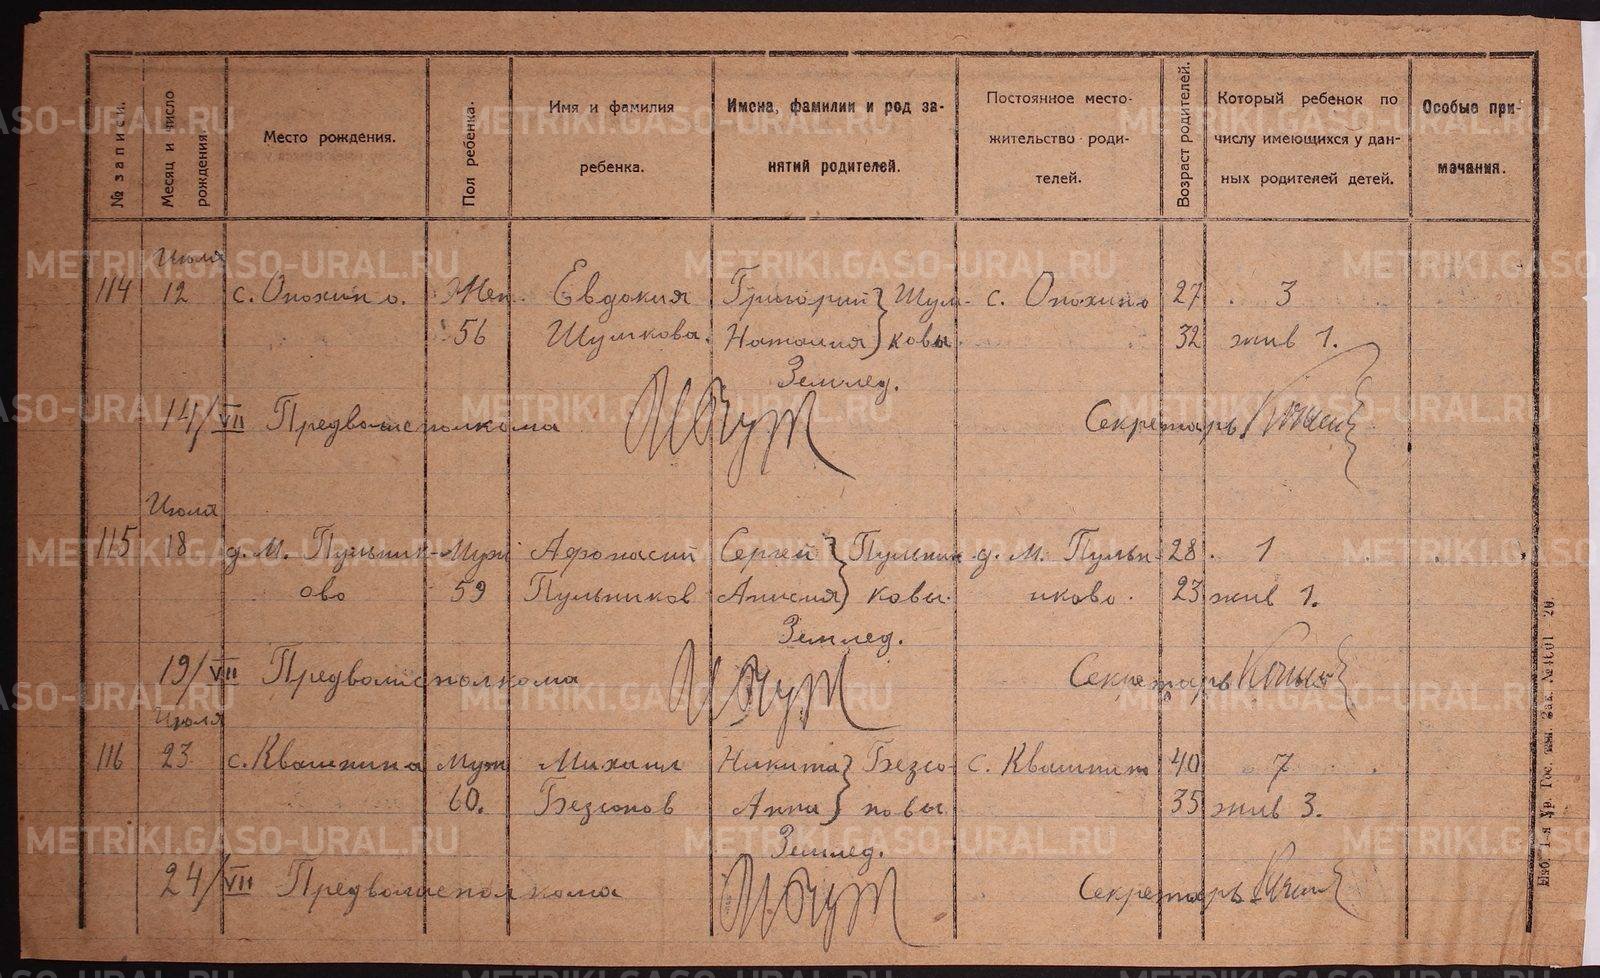 № записи.
Месяц и число рождения.
Место рождения.
Пол ребенка.
Имя и фамилия
ребенка.
Имена, фамилии и род за-
нятий родителей.
Постоянное место-
жительство роди-
телей.
Возраст родителей.
Который ребенок по
числу имеющихся у дан-
ных родителей детей.
Особые при-
мечания.
Июля
114 12 с. Опохино. Жен. Евдокия Григорий } Шум- с. Опохино 27 3
56 Шумкова. Наталия } ковы 32 жив 1.
Землед.
14/VII Предволисполкома Секретарь
Июля
115 18 д. М. Пульник- Муж Афонасий Сергей } Пульни д. М. Пульн- 28 1
ово 59 Пульников Анисия } ковы. иково. 23 жив 1.
Землед.
19/VII Предволисполкома Секретарь
Июля
116 23 с. Квашнина Муж Михаил Никита } Безсо- с. Квашнино 40 7
60. Безсонов Анна } новы 35 жив 3.
Землед.
24/VII Предволисполкома Секретарь
1-я Ур. Гос. тип. Зак. №
METRIKI.GASO-URAL.RU